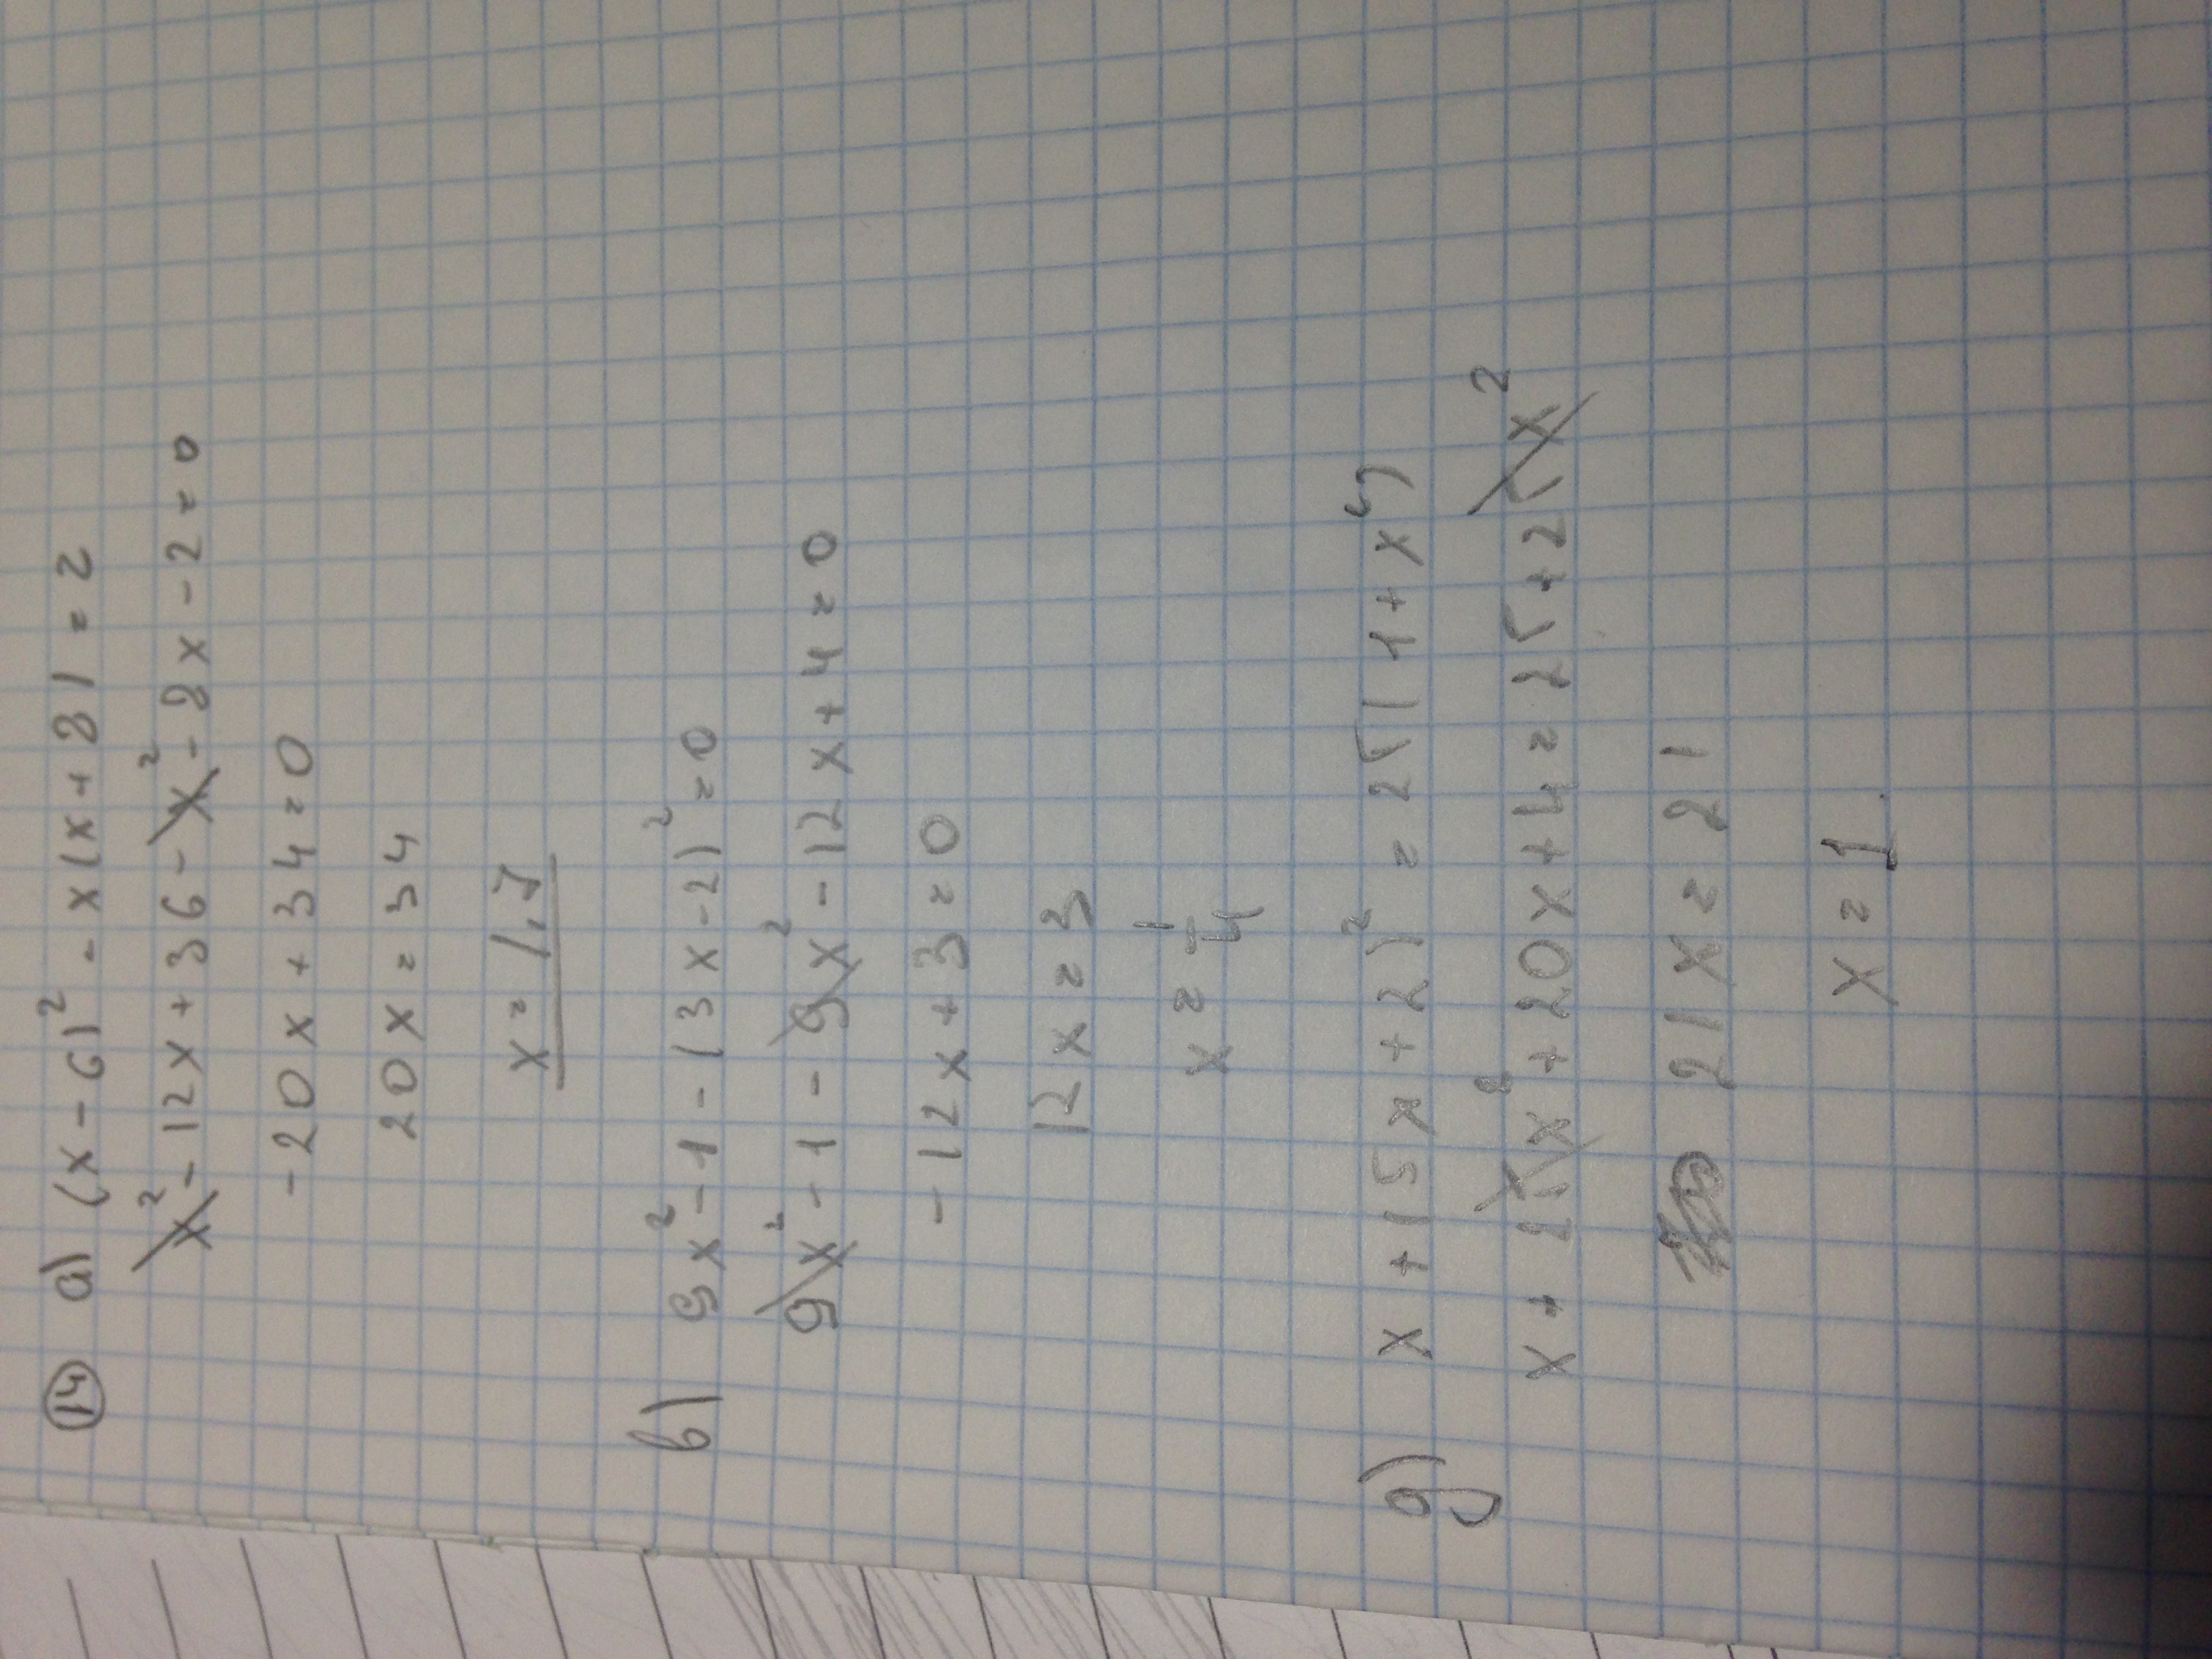 (14) а) (x-6)² - x(x+8) = 2
x² - 12x + 36 - x² - 8x - 2 = 0
-20x + 34 = 0
20x = 34
x = 1,7
в) 9x² - 1 - (3x-2)² = 0
9x² - 1 - 9x² - 12x + 4 = 0
-12x + 3 = 0
12x = 3
x = 1/4
д) x + (5x+2)² = 25(1+x²)
x + 25x² + 20x + 4 = 25 + 25x²
21x = 21
x = 1